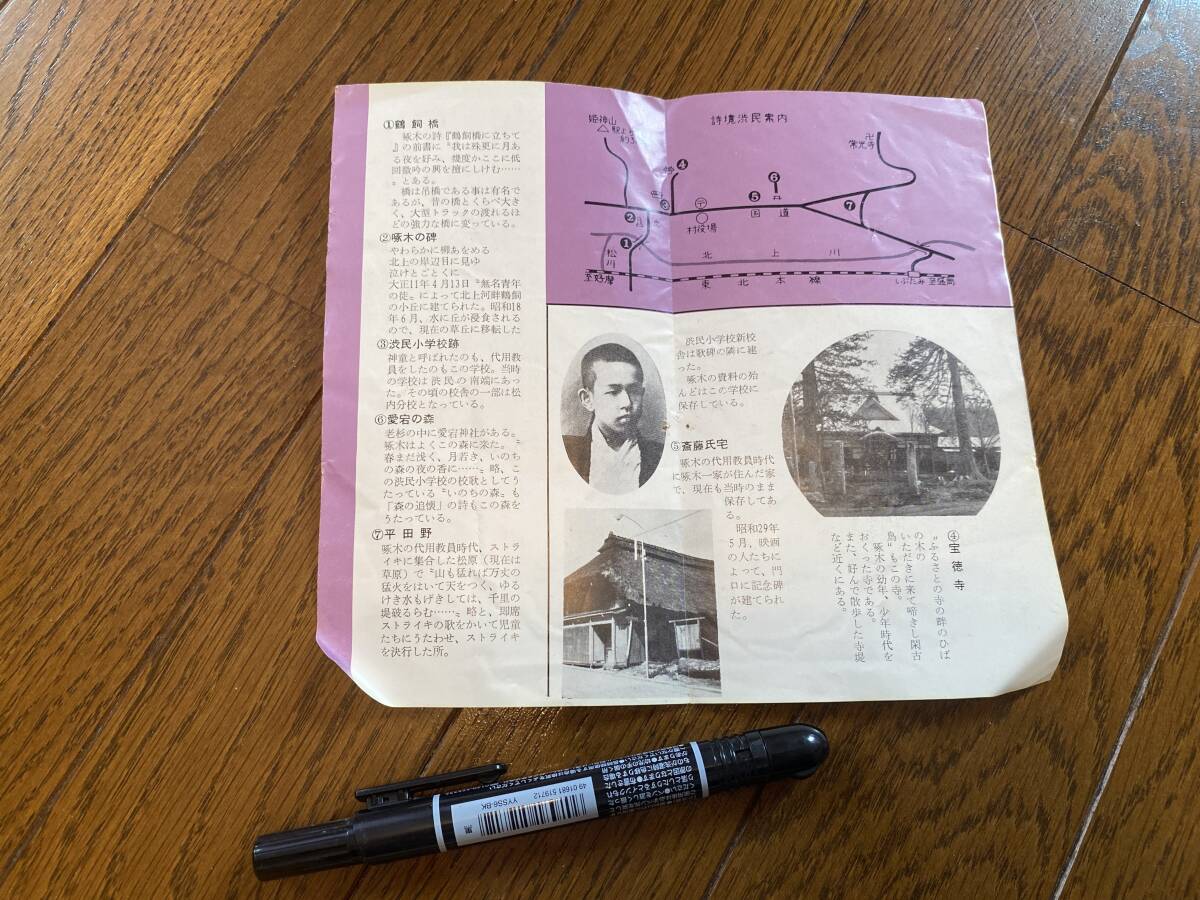 ①鶴飼橋
啄木の詩『鶴飼橋に立ちて
』の前書に〝我は殊更に月あ
る夜を好み、幾度かここに低
回微吟の興を擅にしけむ……
〟とある。
橋は吊橋である事は有名で
あるが、昔の橋とくらべ大き
く、大型トラックの渡れるほ
どの強力な橋に変っている。
②啄木の碑
やわらかに柳あをめる
北上の岸辺目に見ゆ
泣けとごとくに
大正11年4月13日〝無名青年
の徒〟によって北上河畔鶴飼
の小丘に建てられた。昭和18
年6月、水に丘が浸食される
ので、現在の草丘に移転した
③渋民小学校跡
神童と呼ばれたのも、代用教
員をしたのもこの学校。当時
の学校は渋民の南端にあっ
た。その頃の校舎の一部は松
内分校となっている。
⑥愛宕の森
老杉の中に愛宕神社がある。
啄木はよくこの森に来た。〝
春まだ浅く、月若き、いのち
の森の夜の香に……〟略、こ
の渋民小学校の校歌としてう
たっている〝いのちの森〟も
「森の追懐」の詩もこの森を
うたっている。
⑦平田野
啄木の代用教員時代、ストラ
イキに集合した松原（現在は
草原）で〝山も猛れば万丈の
猛火をはいて天をつく、ゆる
けき水もげきしては、千里の
堤破るらむ……〟略と、即席
ストライキの歌をかいて児童
たちにうたわせ、ストライキ
を決行した所。
詩境渋民案内
姫神山
卍
常光寺
④
⑥
⑤
国道
⑦
③
②
〒
村役場
①
松川
北上川
至好摩
東北本線
しぶたみ
至盛岡
渋民小学校新校
舎は歌碑の隣に建
った。
啄木の資料の殆
んどはこの学校に
保存している。
⑤斎藤氏宅
啄木の代用教員時代
に啄木一家が住んだ家
で、現在も当時のまま
保存してあ
る。
昭和29年
5月、映画
の人たちに
よって、門
口に記念碑
が建てられ
た。
④宝徳寺
〝ふるさとの寺の畔のひば
の木の
いただきに来て啼きし閑古
鳥〟もこの寺。
啄木の幼年、少年時代を
おくった寺である。
また、好んで散歩した寺堤
など近くにある。
49 01681 519712
YYSS6-BK
黒